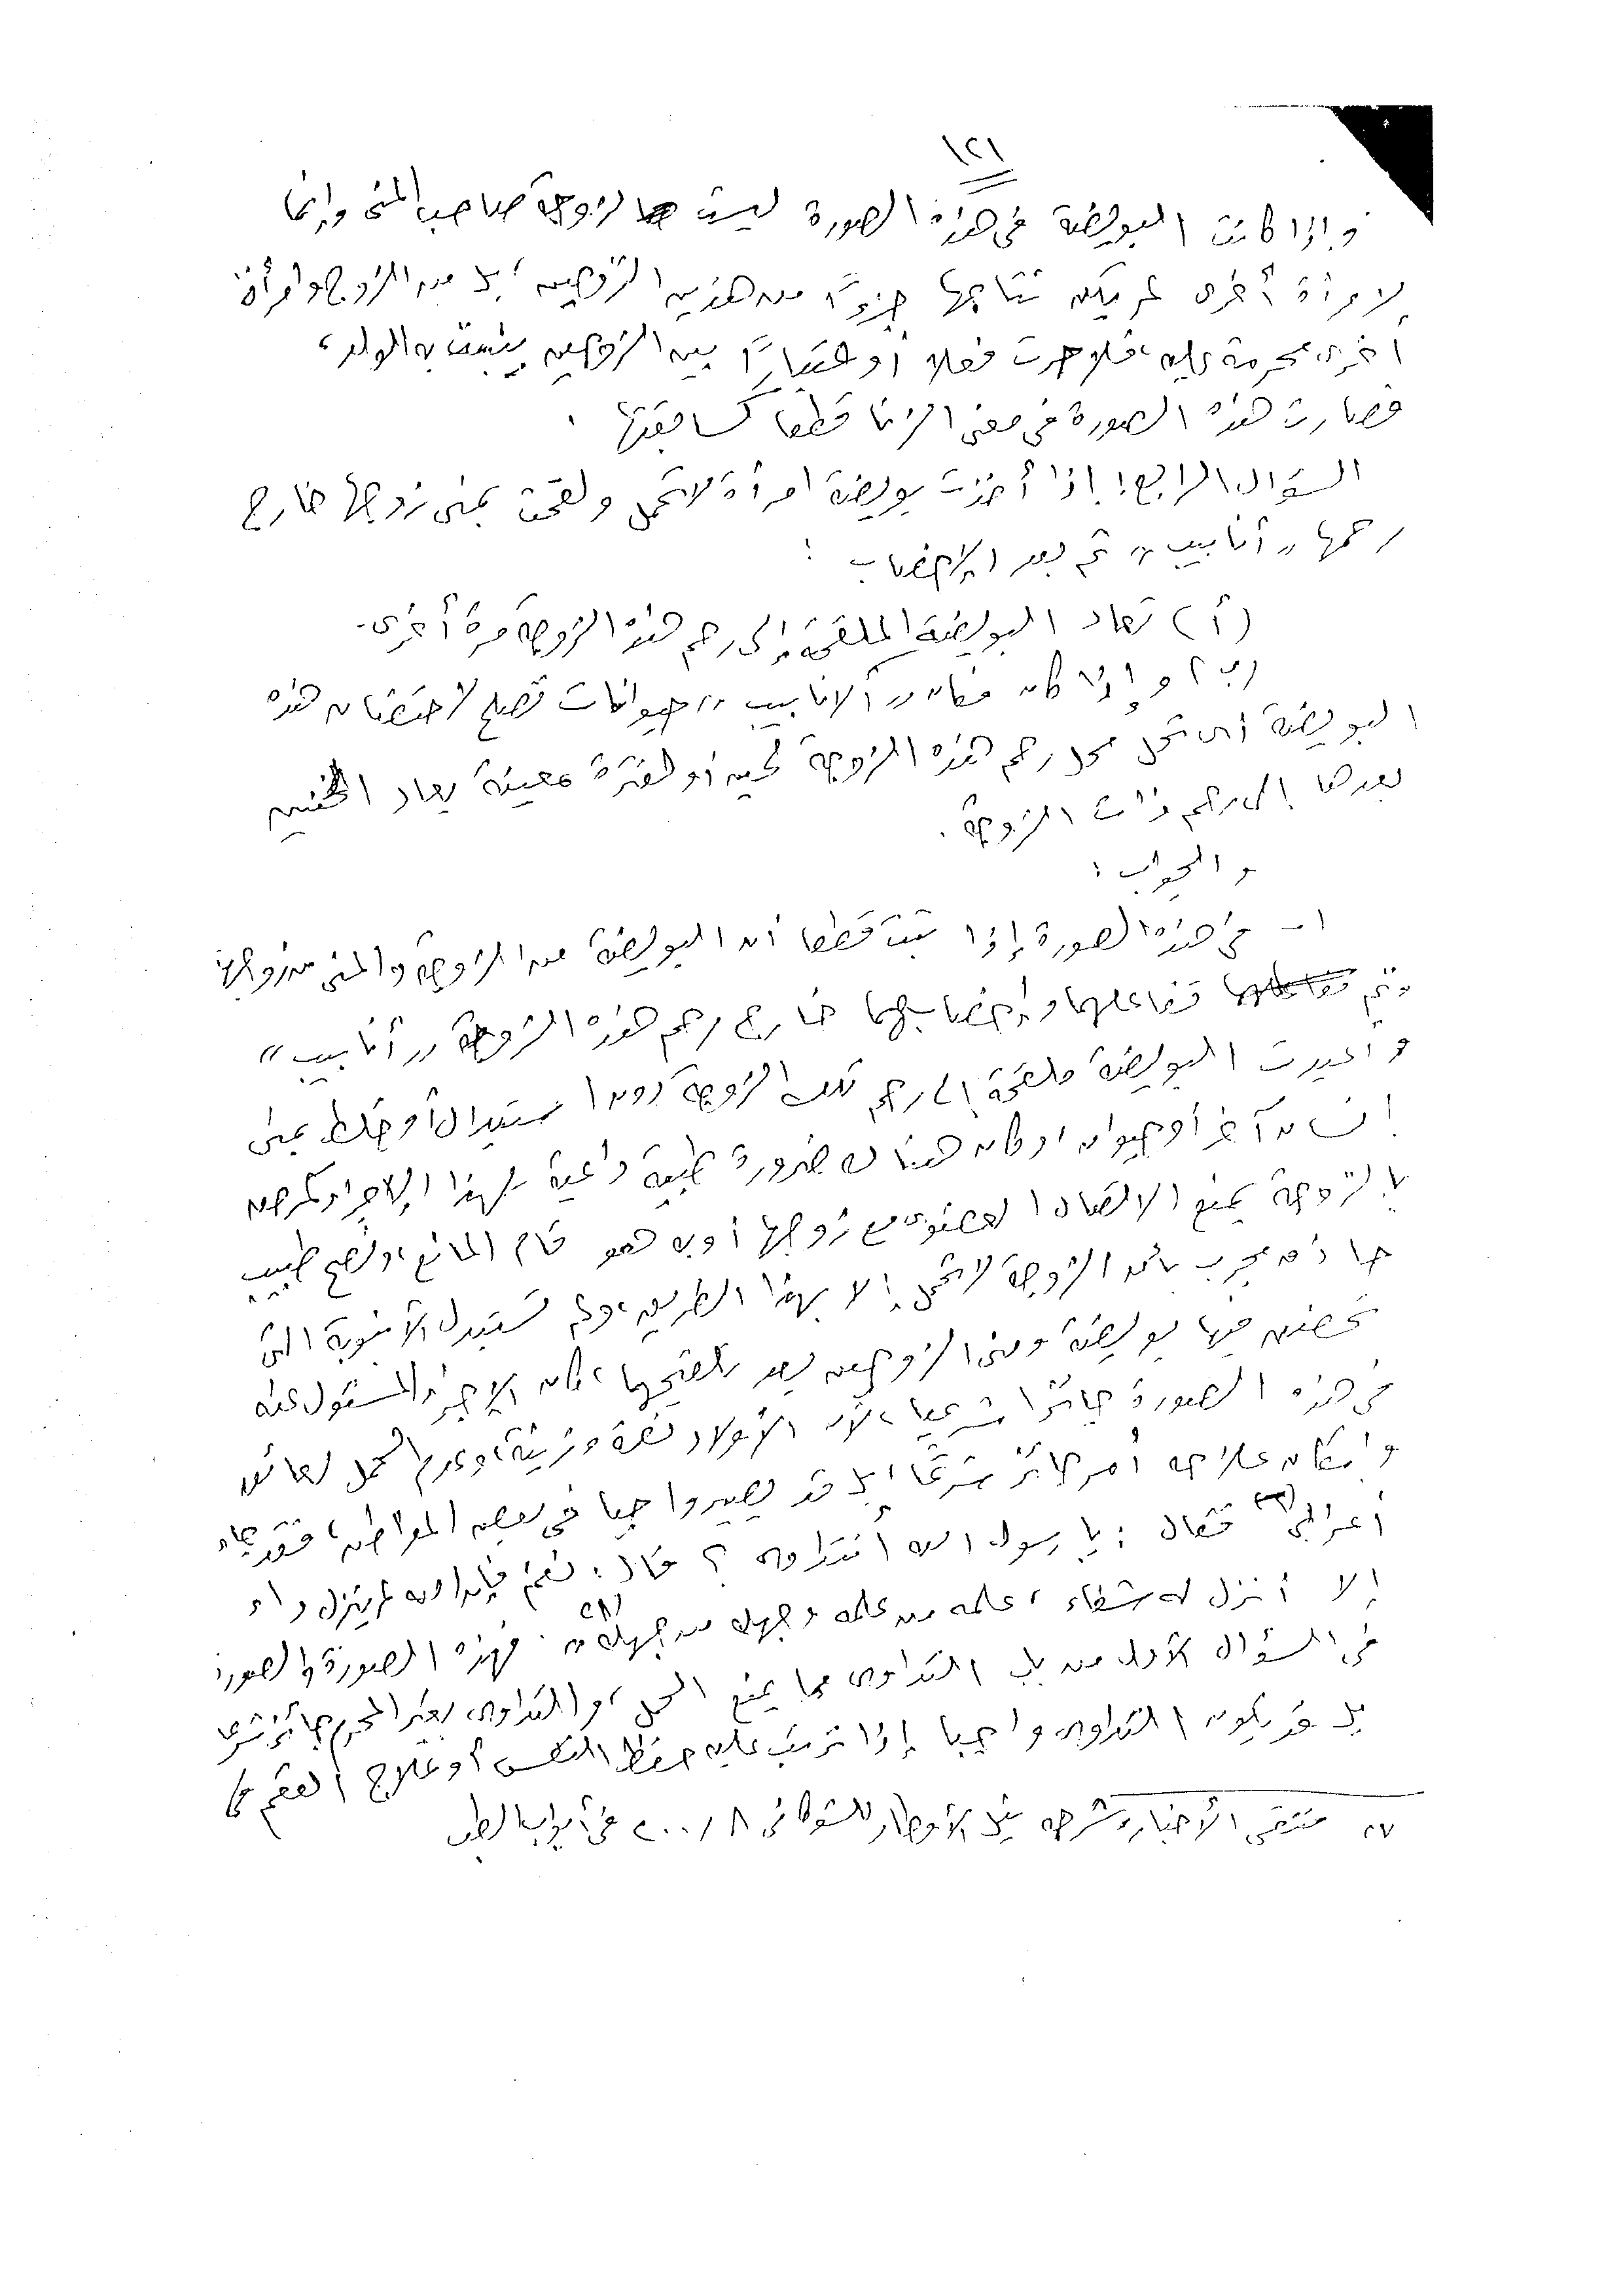 ١٢١
وإذا كانت البويضة فى هذه الصورة ليست لزوجة صاحب المنى وإنما
لامرأة أخرى لم يكن نتاجها جزءًا من هذين الزوجين ، بل من الزوج وامرأة
أخرى محرمة عليه ، فلا حرث فعلا أو اعتبارًا بين الزوجين ينبت به الولد ،
فصارت هذه الصورة فى معنى الزنا قطعا كسابقتها .
السؤال الرابع : إذا أخذت بويضة امرأة لا تحمل ولقحت بمنى زوجها خارج
رحمها « أنابيب » ثم بعد الإخصاب :
( أ ) تعاد البويضة الملقحة إلى رحم هذه الزوجة مرة أخرى .
(ب) وإذا كان مكان « الأنابيب » حيوانات تصلح لاحتضان هذه
البويضة أى تحل محل رحم هذه الزوجة لحين أو لفترة معينة يعاد الجنين
بعدها إلى رحم ذات الزوجة .
والجواب :
١ - فى هذه الصورة إذا ثبت قطعا أن البويضة من الزوجة والمنى من زوجها
وتم تفاعلهما وإخصابهما خارج رحم هذه الزوجة « أنابيب »
وأعيدت البويضة ملقحة إلى رحم تلك الزوجة دون استبدال أو خلط بمنى
إنسان آخر أو حيوان وكان هناك ضرورة طبية داعية لهذا الإجراء كمرض
بالزوجة يمنع الاتصال العضوى مع زوجها أو به هو قام المانع ، ونصح طبيب
حاذق مجرب بأن الزوجة لا تحمل إلا بهذا الطريق ، ولم تستبدل الأنبوبة التى
تحضن فيها بويضة ومنى الزوجين بعد تلقيحهما ، كان الإجراء المسئول عنه
فى هذه الصورة جائزا شرعا ، لأن الأولاد نعمة وزينة ، وعدم الحمل لعائق
وإمكان علاجه أمر جائز شرعًا بل قد يصير واجبا فى بعض المواطن ، فقد جاء
أعرابى فقال : يا رسول الله أنتداوى ؟ قال : نعم فإن الله لم ينزل داء
إلا أنزل له شفاء ، علمه من علمه وجهله من جهله (٢٧) » . فهذه الصورة والصورة
فى السؤال الأول من باب التداوى مما يمنع الحمل ، والتداوى بغير المحرم جائز شرعا
بل قد يكون التداوى واجبا إذا ترتب عليه حفظ النفس أو علاج العقم فى
٢٧ منتقى الأخبار وشرحه نيل الأوطار للشوكانى ٨ / ٢٠٠ فى أبواب الطب